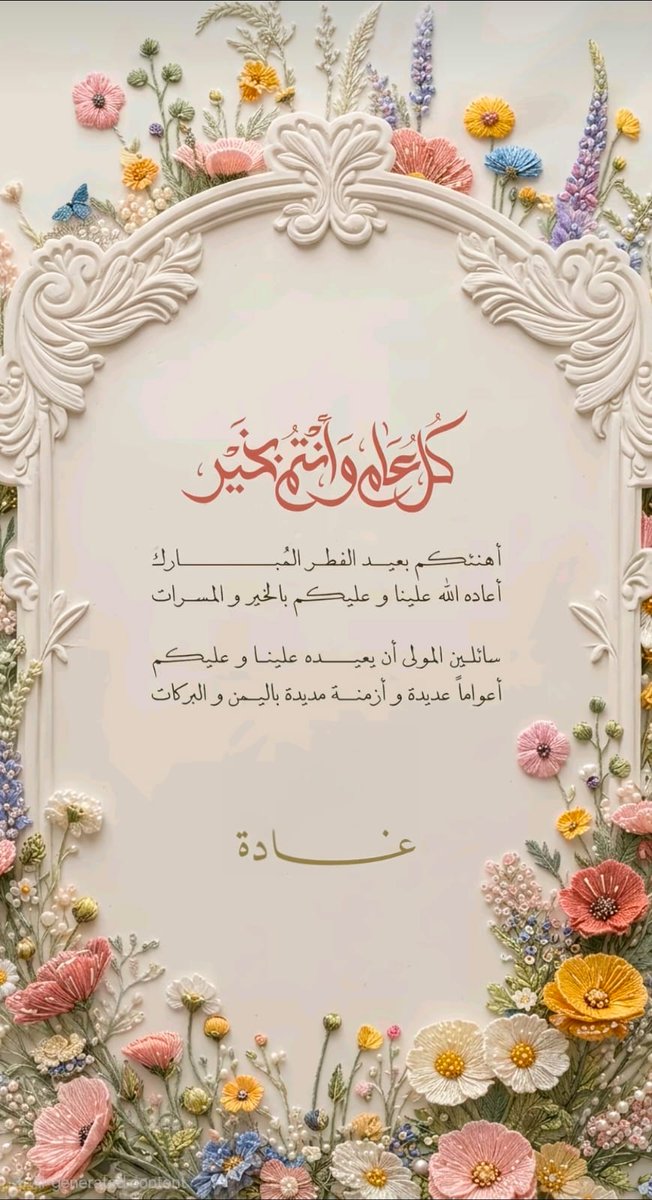 كُلُّ عَامٍ وَأَنْتُمْ بِخَيْر
أهنئكم بعيد الفطر المُبارك
أعاده الله علينا و عليكم بالخير و المسرات
سائلين المولى أن يعيده علينا و عليكم
أعواماً عديدة و أزمنة مديدة باليمن و البركات
غادة
generated content